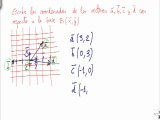 Escribe las coordenadas de los vectores a, b, c y d con
respecto a la base B(x, y)
a (3, 2)
b (0, 3)
c (-1, 0)
d (-1,